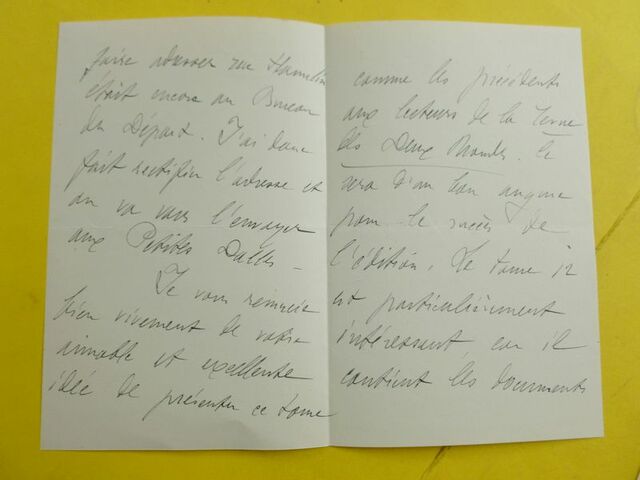 faire adresser rue Hamelin
était encore au Bureau
du Départ. J'ai donc
fait rectifier l'adresse et
on va vous l'envoyer
aux Petites Dalles –
Je vous remercie
bien vivement de votre
aimable et excellente
idée de présenter ce tome
comme les précédents
aux lecteurs de la Revue
des Deux Mondes. Ce
sera d'un bon augure
pour le succès de
l'édition. Le tome
est particulièrement
intéressant car il
contient les documents